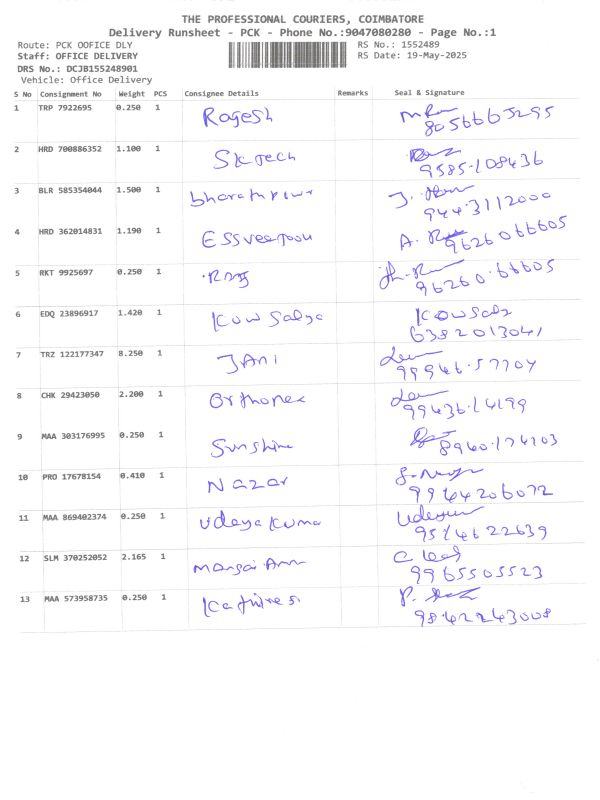 THE PROFESSIONAL COURIERS, COIMBATORE
Delivery Runsheet - PCK - Phone No.:9047080280 - Page No.:1
Route: PCK OOFICE DLY RS No.: 1552489
Staff: OFFICE DELIVERY RS Date: 19-May-2025
DRS No.: DCJB155248901
Vehicle: Office Delivery
S No Consignment No Weight PCS Consignee Details Remarks Seal & Signature
1 TRP 7922695 0.250 1 Ragesh
8056665295
2 HRD 700886352 1.100 1 Sktech
9585108436
3 BLR 585354044 1.500 1
9443112000
4 HRD 362014831 1.190 1
9626066605
5 RKT 9925697 0.250 1
96260.66605
6 EDQ 23896917 1.420 1 Kowsalya Kowsalya
6382013041
7 TRZ 122177347 8.250 1 JANI
99946.57704
8 CHK 29423050 2.200 1 Orthonex
99436.14199
9 MAA 303176995 0.250 1 Sunshine
8940.174103
10 PRO 17678154 0.410 1 Nazar
9944206072
11 MAA 869402374 0.250 1 Udaya Kuma
9514622639
12 SLM 370252052 2.165 1
9965505523
13 MAA 573958735 0.250 1
9842243008